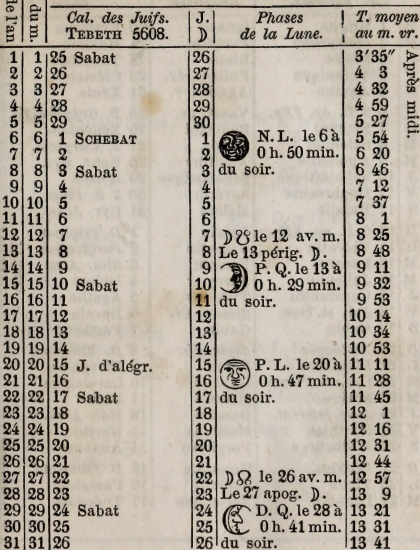 de l'an
du m.
Cal. des Juifs. J. Phases T. moyen
TEBETH 5608. ☽ de la Lune. au m. vr.
1 1 25 Sabat 26 3'35"
2 2 26 27 4 3
3 3 27 28 4 32
4 4 28 29 4 59
5 5 29 30 5 27
6 6 1 SCHEBAT 1 N. L. le 6 à 5 54
7 7 2 2 0 h. 50 min. 6 20
8 8 3 Sabat 3 du soir. 6 46
9 9 4 4 7 12
10 10 5 5 7 37
11 11 6 6 8 1
12 12 7 7 ☽☋ le 12 av. m. 8 25
13 13 8 8 Le 13 périg. ☽. 8 48
14 14 9 9 P. Q. le 13 à 9 11
15 15 10 Sabat 10 0 h. 29 min. 9 32
16 16 11 11 du soir. 9 53
17 17 12 12 10 14
18 18 13 13 10 34
19 19 14 14 10 53
20 20 15 J. d'alégr. 15 P. L. le 20 à 11 11
21 21 16 16 0 h. 47 min. 11 28
22 22 17 Sabat 17 du soir. 11 45
23 23 18 18 12 1
24 24 19 19 12 16
25 25 20 20 12 31
26 26 21 21 12 44
27 27 22 22 ☽☊ le 26 av. m. 12 57
28 28 23 23 Le 27 apog. ☽. 13 9
29 29 24 Sabat 24 D. Q. le 28 à 13 21
30 30 25 25 0 h. 41 min. 13 31
31 31 26 26 du soir. 13 41
Après midi.